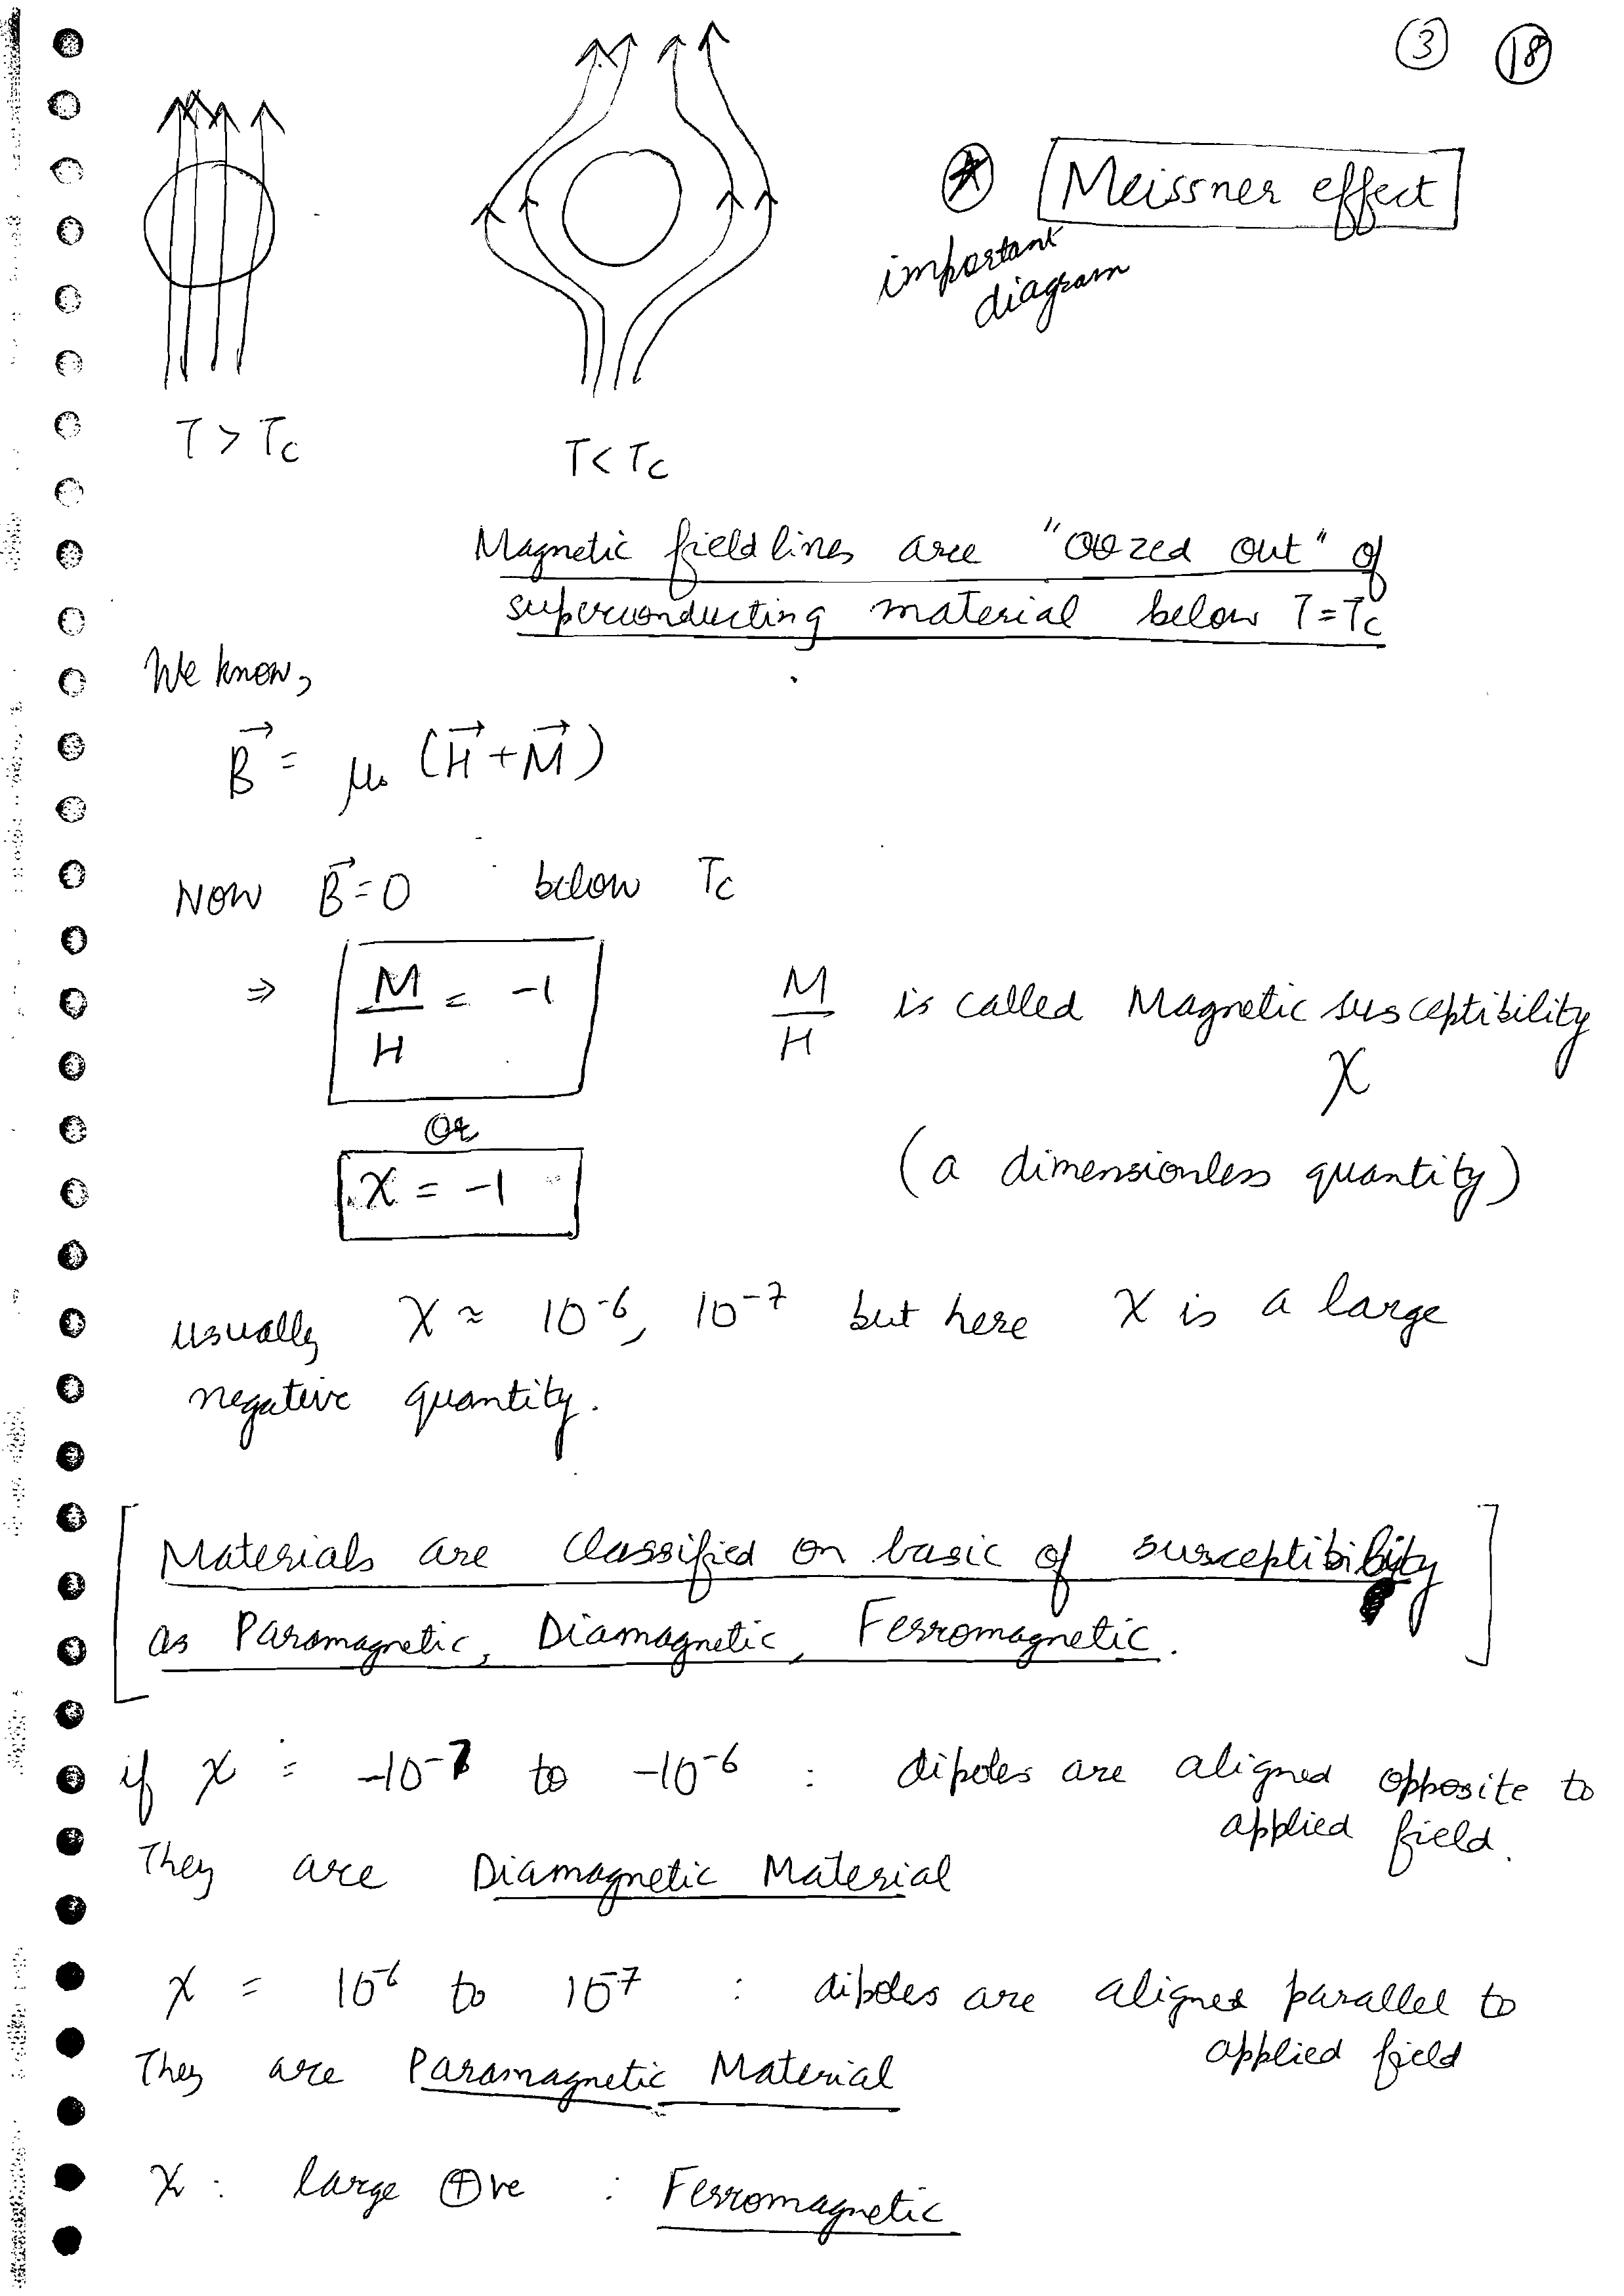 ③ ⑱
Meissner effect
important
diagram
T > Tc
T < Tc
Magnetic field lines are "oozed out" of
superconducting material below T = Tc
We know,
B⃗ = μ₀ (H⃗ + M⃗)
Now B⃗ = 0 below Tc
⇒ M/H = -1 M/H is called Magnetic susceptibility
χ
Or
χ = -1 (a dimensionless quantity)
usually χ ≈ 10⁻⁶, 10⁻⁷ but here χ is a large
negative quantity.
Materials are classified on basic of susceptibility
as Paramagnetic, Diamagnetic, Ferromagnetic.
if χ = -10⁻⁷ to -10⁻⁶ : dipoles are aligned opposite to
applied field.
They are Diamagnetic Material
χ = 10⁻⁶ to 10⁻⁷ : dipoles are aligned parallel to
applied field
They are Paramagnetic Material
χ : large ⊕ve : Ferromagnetic